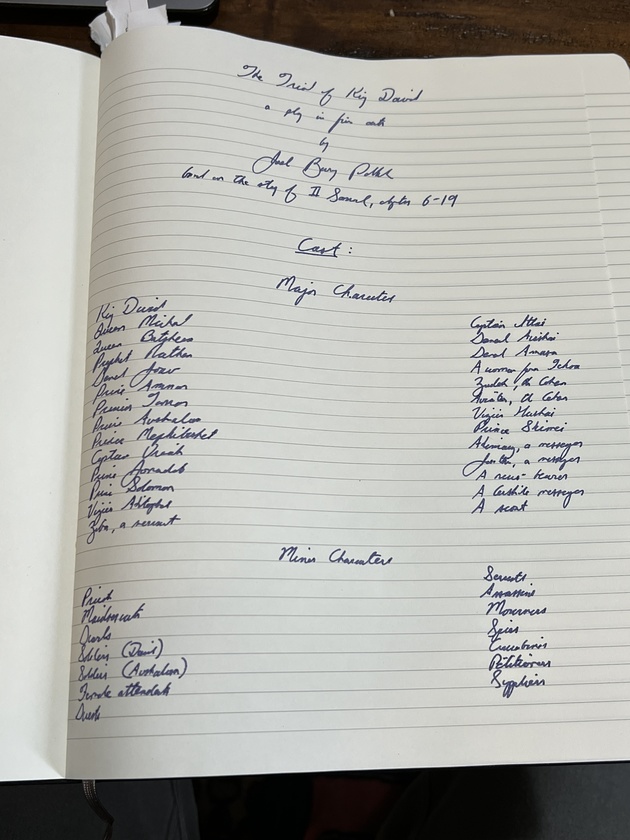 The Trial of King David
a play in five acts
by
Joel Barry
based on the story of II Samuel, chapters 6-19
Cast:
Major Characters
King David
Queen Michal
Queen Batsheva
Prophet Nathan
General Joav
Prince Amnon
Princess Tamar
Prince Avshalom
Prince Mephiboshet
Captain Uriah
Prince Jonadab
Prince Solomon
Vizier Ahitophel
Ziba, a servant
Captain Ittai
General Avishai
General Amasa
A woman from Tekoa
Zadok the Cohen
Aviatar, the Cohen
Vizier Hushai
Prince Shimei
Ahimaaz, a messenger
Jonathan, a messenger
A news-bearer
A Cushite messenger
A scout
Minor Characters
Priests
Maidservants
Guards
Soldiers (David)
Soldiers (Avshalom)
Female attendants
Guests
Servants
Assassins
Mourners
Spies
Concubines
Petitioners
Suppliers